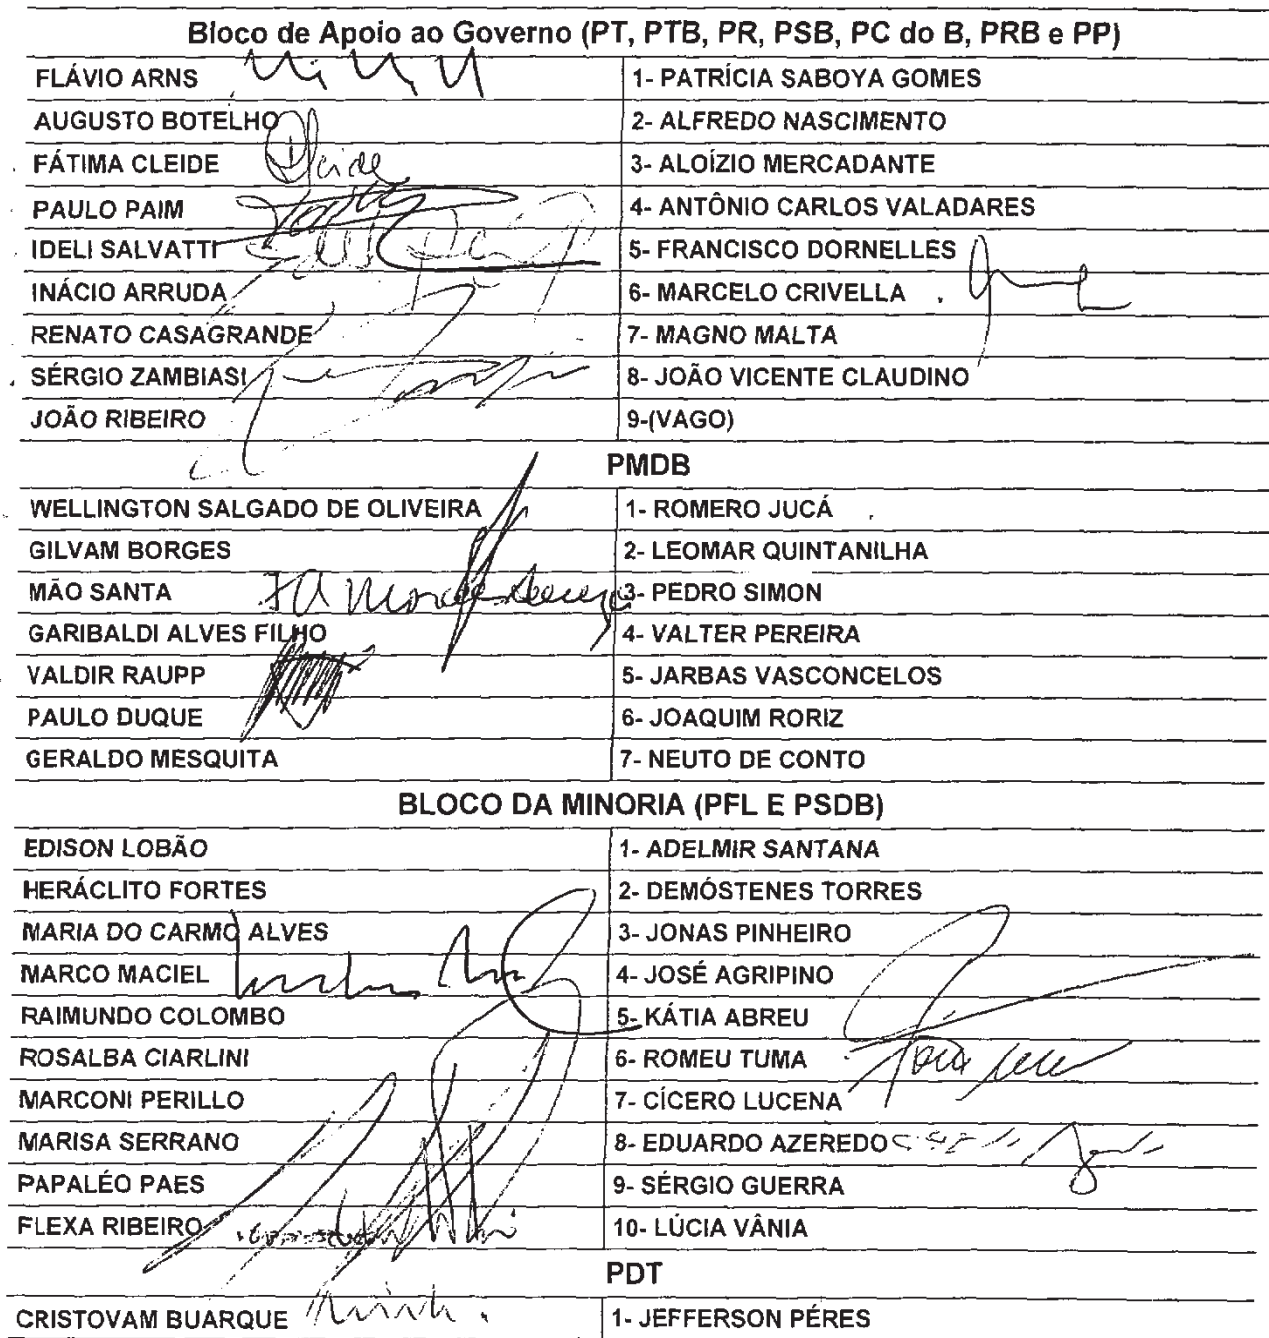 Bloco de Apoio ao Governo (PT, PTB, PR, PSB, PC do B, PRB e PP)
FLÁVIO ARNS 1- PATRÍCIA SABOYA GOMES
AUGUSTO BOTELHO 2- ALFREDO NASCIMENTO
FÁTIMA CLEIDE 3- ALOÍZIO MERCADANTE
PAULO PAIM 4- ANTÔNIO CARLOS VALADARES
IDELI SALVATTI 5- FRANCISCO DORNELLES
INÁCIO ARRUDA 6- MARCELO CRIVELLA
RENATO CASAGRANDE 7- MAGNO MALTA
SÉRGIO ZAMBIASI 8- JOÃO VICENTE CLAUDINO
JOÃO RIBEIRO 9-(VAGO)
PMDB
WELLINGTON SALGADO DE OLIVEIRA 1- ROMERO JUCÁ
GILVAM BORGES 2- LEOMAR QUINTANILHA
MÃO SANTA 3- PEDRO SIMON
GARIBALDI ALVES FILHO 4- VALTER PEREIRA
VALDIR RAUPP 5- JARBAS VASCONCELOS
PAULO DUQUE 6- JOAQUIM RORIZ
GERALDO MESQUITA 7- NEUTO DE CONTO
BLOCO DA MINORIA (PFL E PSDB)
EDISON LOBÃO 1- ADELMIR SANTANA
HERÁCLITO FORTES 2- DEMÓSTENES TORRES
MARIA DO CARMO ALVES 3- JONAS PINHEIRO
MARCO MACIEL 4- JOSÉ AGRIPINO
RAIMUNDO COLOMBO 5- KÁTIA ABREU
ROSALBA CIARLINI 6- ROMEU TUMA
MARCONI PERILLO 7- CÍCERO LUCENA
MARISA SERRANO 8- EDUARDO AZEREDO
PAPALÉO PAES 9- SÉRGIO GUERRA
FLEXA RIBEIRO 10- LÚCIA VÂNIA
PDT
CRISTOVAM BUARQUE 1- JEFFERSON PÉRES